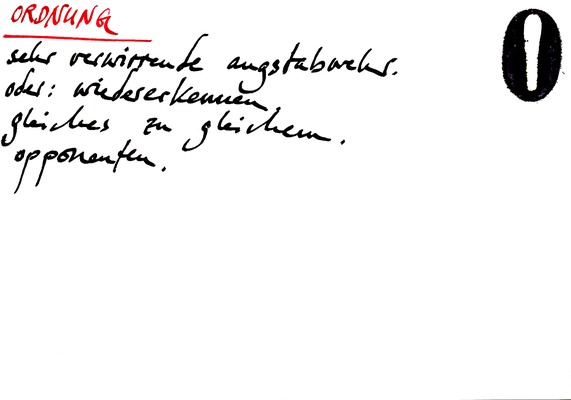 ORDNUNG
O
sehr verwirrende angstabwehr.
oder: wiedererkennen,
gleiches zu gleichem.
opponenten.